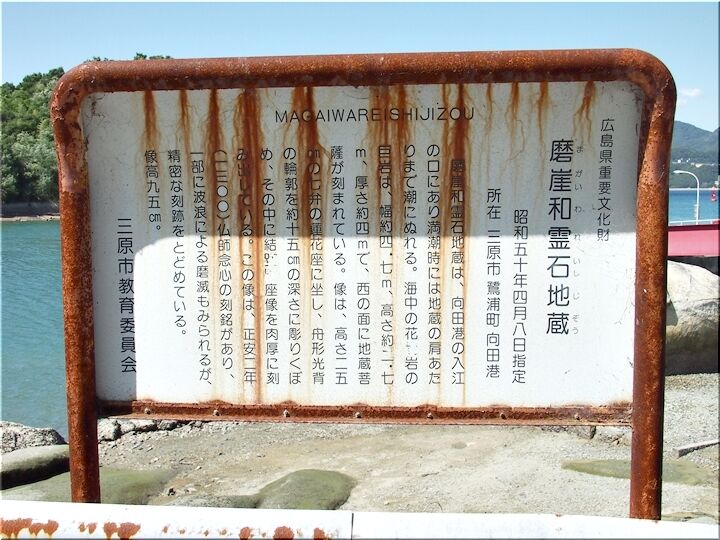 MAGAIWAREISHIJIZOU
広島県重要文化財
磨崖和霊石地蔵
まがいわれいしじぞう
昭和五十年四月八日指定
所在 三原市鷺浦町向田港
磨崖和霊石地蔵は、向田港の入江
の口にあり満潮時には地蔵の肩あた
りまで潮にぬれる。海中の花崗岩の
巨岩は、幅約四・七m、高さ約二・七
m、厚さ約四mで、西の面に地蔵菩
薩が刻まれている。像は、高さ二五
cmの七弁の蓮花座に坐し、舟形光背
の輪郭を約十五cmの深さに彫りくぼ
め、その中に結 座像を肉厚に刻
み出している。この像は、正安二年
(一三〇〇)仏師念心の刻銘があり、
一部に波浪による磨滅もみられるが、
精密な刻跡をとどめている。
像高九五cm。
三原市教育委員会